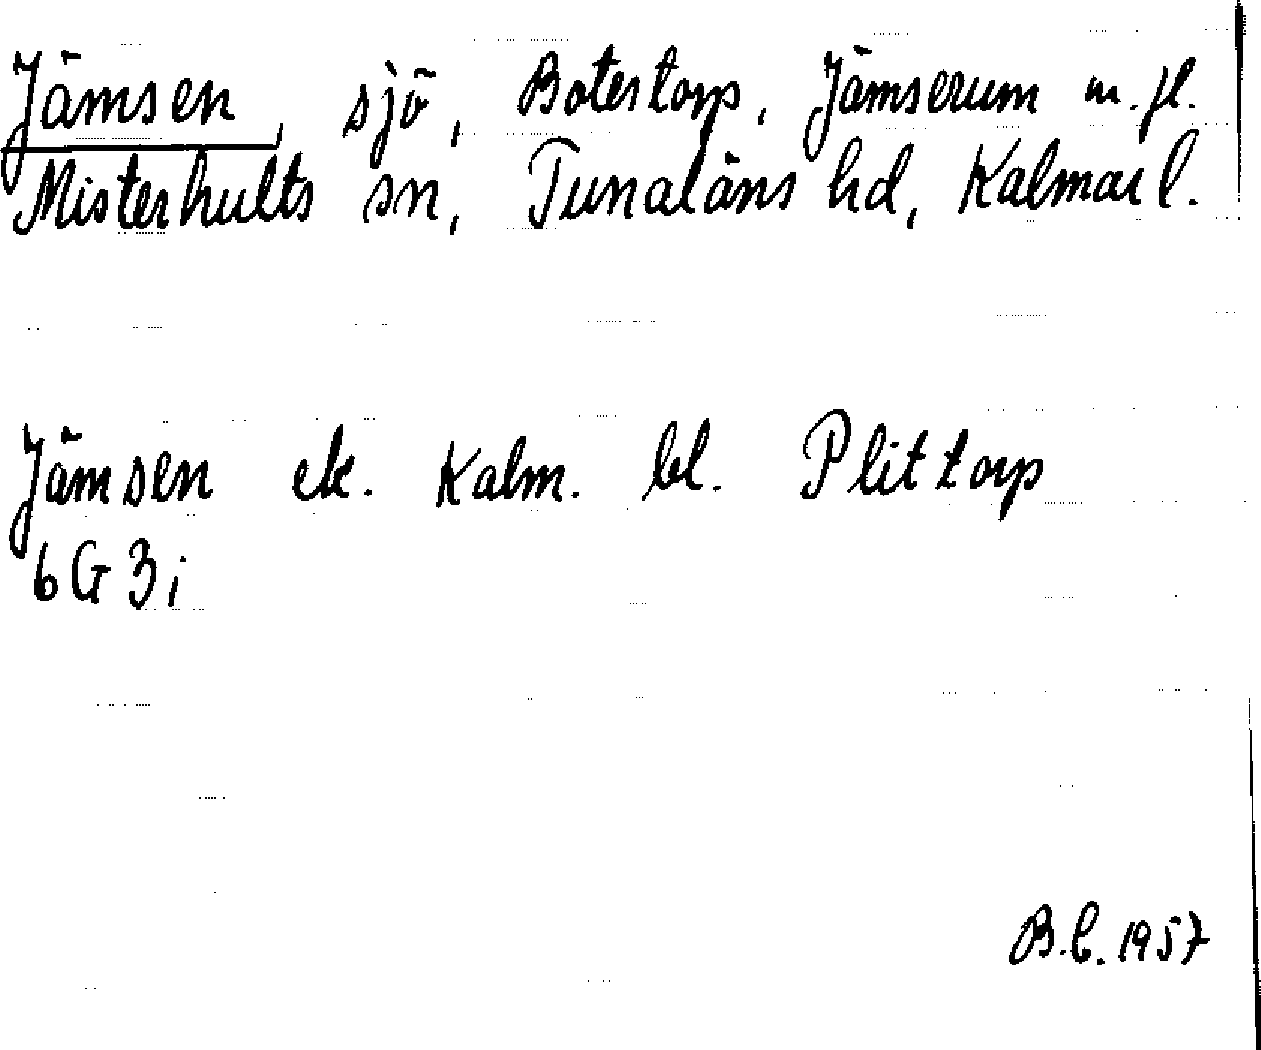 Jämsen, sjö, Botestorp, Jämserum m.fl.
Misterhults sn, Tunaläns hd, Kalmar l.
Jämsen ek. Kalm. bl. Plittorp
6G 3i
B.C. 1957